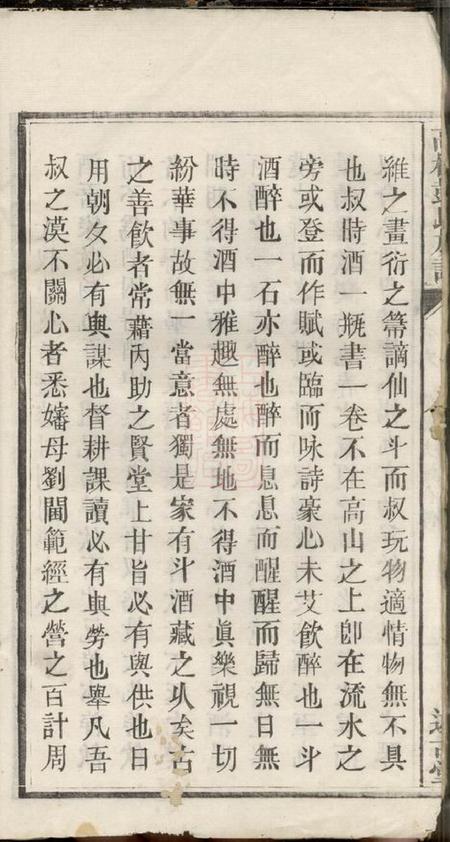 維之畫衍之箒謫仙之斗而叔玩物適情物無不具
也叔時酒一瓶書一卷不在高山之上卽在流水之
旁或登而作賦或臨而咏詩豪心未艾飲醉也一斗
酒醉也一石亦醉也醉而息息而醒醒而歸無日無
時不得酒中雅趣無處無地不得酒中眞樂視一切
紛華事故無一當意者獨是家有斗酒藏之久矣古
之善飲者常藉內助之賢堂上甘旨必有與供也日
用朝夕必有與謀也督耕課讀必有與勞也舉凡吾
叔之漠不關心者悉嬸母劉閫範經之營之百計周